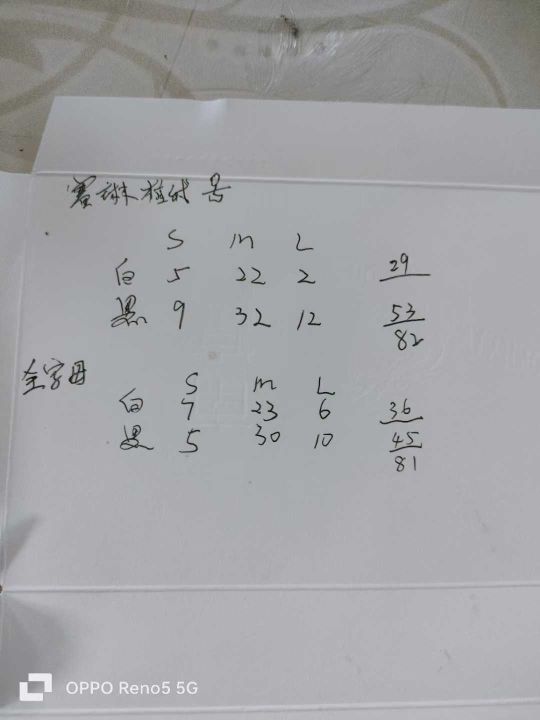 S M L
白 5 22 2 29
黑 9 32 12 53
82
全字母
S M L
白 7 23 6 36
黑 5 30 10 45
81
OPPO Reno5 5G